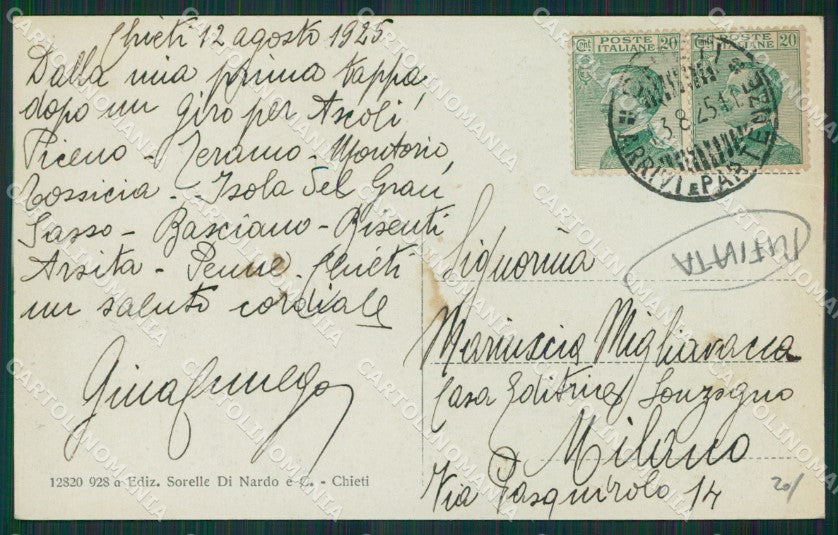 Chieti 12 agosto 1925
Dalla mia prima tappa,
dopo un giro per Ascoli
Piceno - Teramo - Montorio,
Tossicia - Isola del Gran
Sasso - Basciano - Bisenti
Arsita - Penne - Chieti
un saluto cordiale
12820 928 a Ediz. Sorelle Di Nardo e C. - Chieti
Cent. 20 POSTE ITALIANE 20
POSTE ITALIANE 20
3.8.25
ARRIVI E PARTENZE
Signorina
Mariuscia Migliavacca
Casa Editrice Sonzogno
Milano
Via Pasquirolo 14
20/
CARTOLINOMANIA